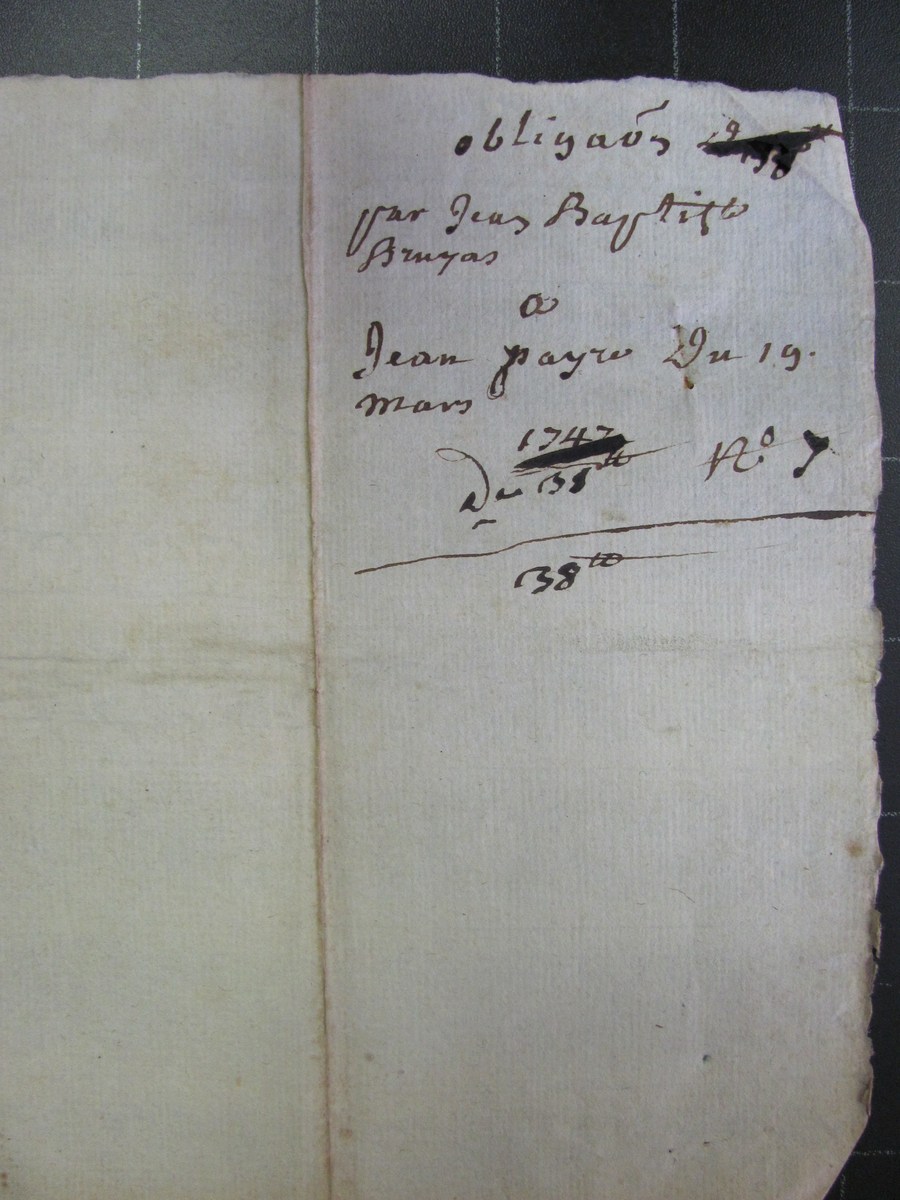 obligaõn
par Jean Baptiste
Bruyas
a
Jean payre Du 19.
mars
1747
De 38ᵗᵗ N° 7
38ᵗᵗ